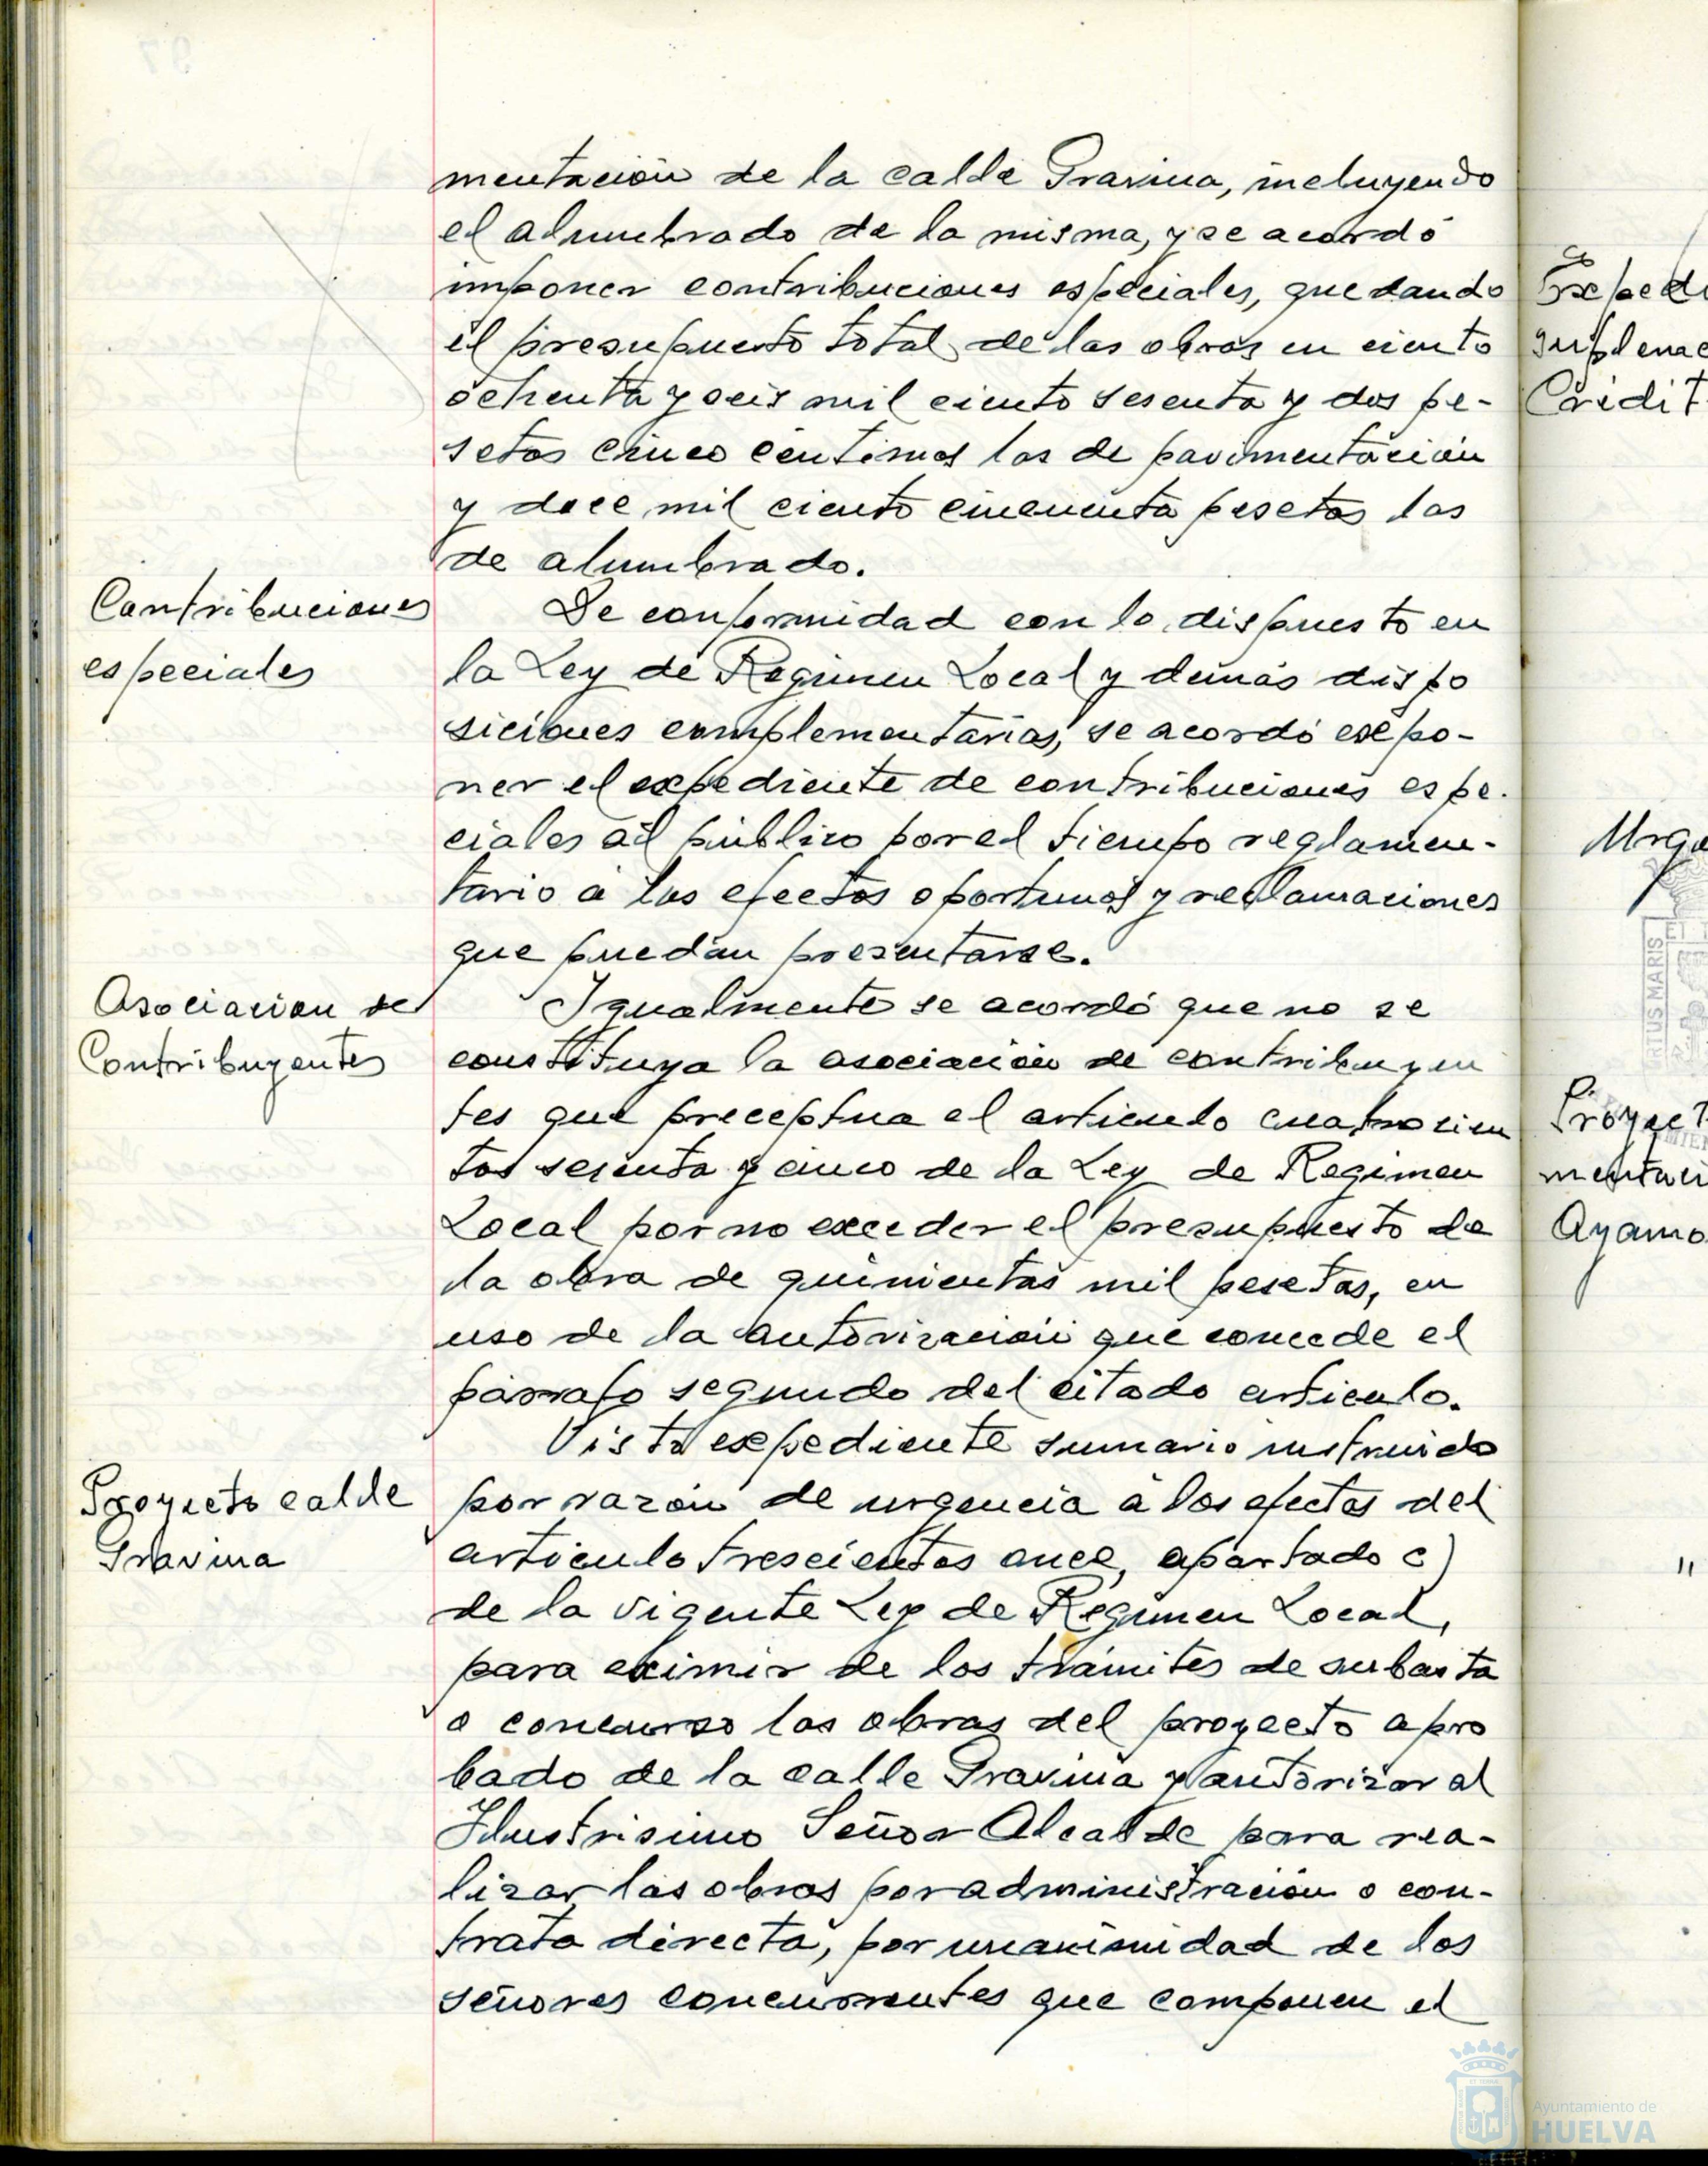 mentación de la calle Gravina, incluyendo
el alumbrado de la misma, y se acordó
imponer contribuciones especiales, quedando
el presupuesto total de las obras en ciento
ochenta y seis mil ciento sesenta y dos pe-
setas cinco centimos las de pavimentación
y doce mil ciento cincuenta pesetas las
de alumbrado.
Contribuciones
especiales
De conformidad con lo dispuesto en
la Ley de Regimen Local y demás dispo
siciones complementarias, se acordó expo-
ner el expediente de contribuciones espe-
ciales al público por el tiempo reglamen-
tario a los efectos oportunos y reclamaciones
que puedan presentarse.
Asociacion de
Contribuyentes
Igualmente se acordó que no se
constituya la asociación de contribuyen
tes que preceptua el articulo cuatrocien
tos sesenta y cinco de la Ley de Regimen
Local por no exceder el presupuesto de
la obra de quinientas mil pesetas, en
uso de la autorización que concede el
párrafo segundo del citado articulo.
Proyecto calle
Gravina
Visto expediente sumario instruido
por razón de urgencia a los efectos del
articulo trescientos once, apartado c)
de la vigente Ley de Regimen Local,
para eximir de los trámites de subasta
o concurso las obras del proyecto apro
bado de la calle Gravina y autorizar al
Ilustrisimo Señor Alcalde para rea-
lizar las obras por administración o con-
trata directa, por unanimidad de los
señores concurrentes que componen el
Crédit
Proyect
Ayamo
Ayuntamiento de
HUELVA